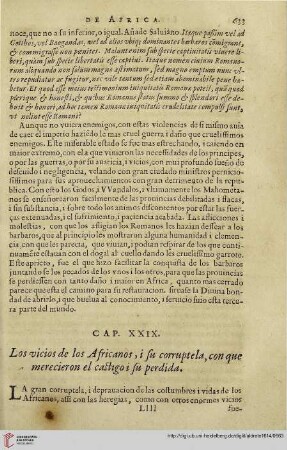 DE AFRICA. 633
noce, que no a su inferior, o igual. Añade Salviano Itaque passim vel ad
Gotthos, vel Bagaudas, vel ad alios ubiq; dominantes barbaros migrant,
& commigrasse non penitet. Malunt enim sub specie captivitatis vivere li
beri, quàm sub specie libertatis esse captivi. Itaque nomen civium Romano
rum aliquando non solùm magno æstimatum, sed magno emptum nunc vl-
tro repudiatur ac fugitur, nec vile tantum sed etiam abominabile pene ha-
betur. Et quod esse maius testimonium iniquitatis Romanæ potest, quàm quod
plerique & honesti, & quibus Romanus status summo & splendori esse de-
buit & honori, ad hoc tamen Romanæ iniquitatis crudelitate compulsi sunt,
ut nolint esse Romani?
Aunque no vuiera enemigos, con estas violencias de si mismo auia
de caer el imperio haziédo le mas cruel guerra i daño que cruelissimos
enemigos. Este miserable estado se fue mas estrechando, i cayendo en
maior extremo, con ella que vuiesse necessidades de los principes,
o por las guerras, o por su auaricia, i vicios, con mui profundo sueño de
descuido i negligencia, velando con gran cuidado ministros perniciosis-
simos para sus aprouechamientos con gran detrimento de la republica.
Con esto los Godos, i VVandalos, i ultimamente los Mahometa-
nos se enseñorearon facilmente de las prouincias debilitadas i flacas,
i sin substancia, i sobre todo los animos descontentos por estar sus fuer-
ças extenuadas, i el sufrimiento, i paciencia acabada. Las aflicciones i
molestias, con que los afligian los Romanos les hazian dessear a los
barbaros, que al principio les mostraron alguna humanidad i clemen-
cia, con que les parecia, que viuian, i podian respirar de los que conti-
nuamente estauan con el dogal al cuello dando les cruelissimo garrote.
Este aprieto, fue el que hizo facilitar la conquista de los barbaros
juntando se los pecados de los vnos i de los otros, para que las prouincias
se perdiessen con tanto daño i maior en Africa, quanto mas cerrado
parece que esta el camino para su restauracion. siruase la Diuina bon-
dad de abrirlo, i que buelua al conocimiento, i seruicio suio esta terce-
ra parte del mundo.
CAP. XXIX.
Los vicios de los Africanos, i su corruptela, con que
merecieron el castigo i su perdida.
LA gran corruptela, i deprauacion de las costumbres i vidas de los
Africanos, assi con las heregias, como con otros enormes vicios
Llll fue-
http://digi.ub.uni-heidelberg.de/diglit/aldrete1614/0663